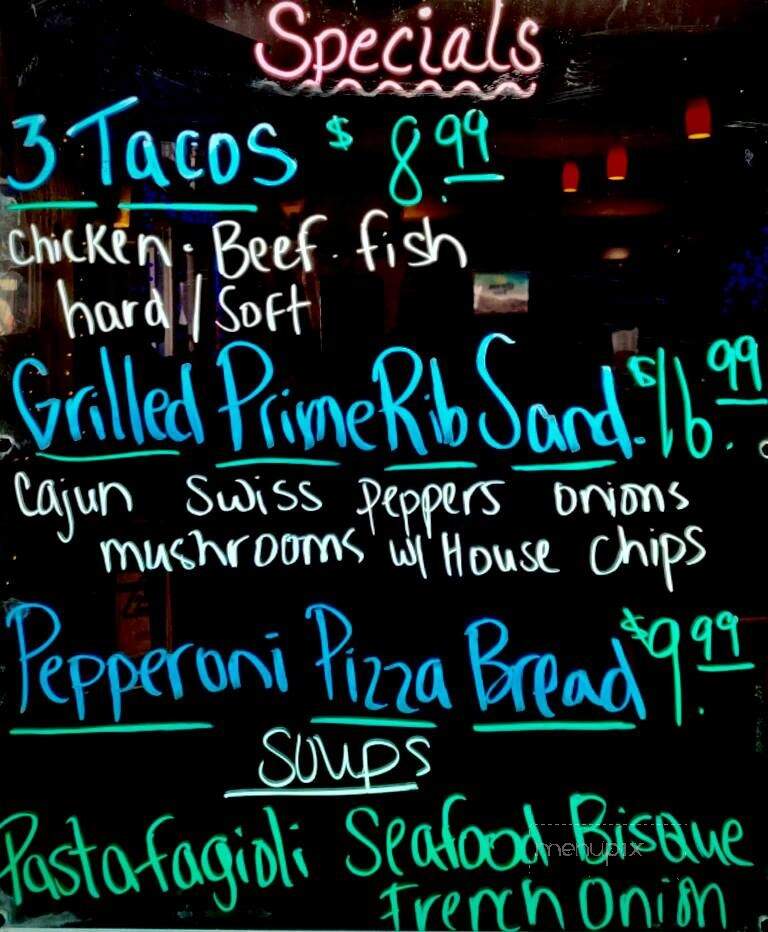 Specials
3 Tacos $8.99
Chicken · Beef · fish
hard / Soft
Grilled Prime Rib Sand. $16.99
Cajun Swiss Peppers onions
mushrooms w/ House Chips
Pepperoni Pizza Bread $9.99
Soups
Pastafagioli Seafood Bisque
French Onion
menupix